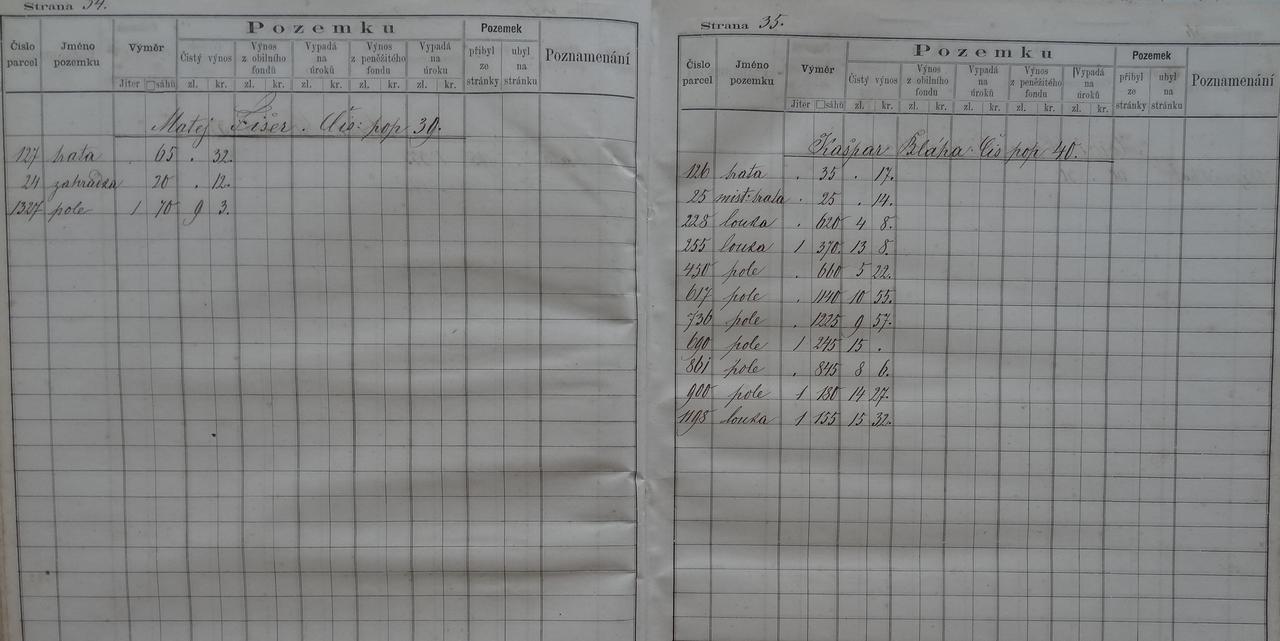 Strana 34.
Pozemku
Číslo parcel
Jméno pozemku
Výměr
Čistý výnos
Výnos z obilního fondu
Vypadá na úroků
Výnos z peněžitého fondu
Vypadá na úroku
Pozemek
přibyl ze stránky
ubyl na stránku
Poznamenání
Jiter □sáhů zl. kr. zl. kr. zl. kr. zl. kr. zl. kr.
Matej Fišer. Čís: pop 30.
127 hata . 65 . 32.
24 zahrádka 20 . 12.
1327 pole 1 70 9 3.
Strana 35.
Pozemku
Číslo parcel
Jméno pozemku
Výměr
Čistý výnos
Výnos z obilního fondu
Vypadá na úroků
Výnos z peněžitého fondu
Vypadá na úroků
Pozemek
přibyl ze stránky
ubyl na stránku
Poznamenání
Jiter □sáhů zl. kr. zl. kr. zl. kr. zl. kr. zl. kr.
Kašpar Bláha Čís pop 40.
126 hata . 35 . 17.
25 míst. hata . 25 . 14.
228 louka . 620 4 8.
255 louka 1 370. 13 8.
430 pole . 660 5 22.
617 pole . 1140 10 55.
736 pole . 1225 9 57.
690 pole 1 245 15 .
861 pole . 845 8 6.
900 pole 1 180 14 27.
1198 louka 1 155 15 32.